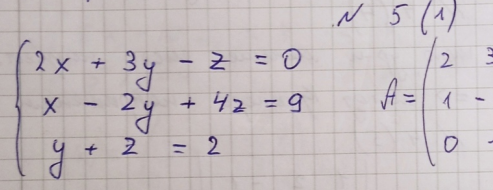 N 5 (1)
2x + 3y - z = 0
x - 2y + 4z = 9
y + z = 2
A = ( 2 3
1 -
0 -